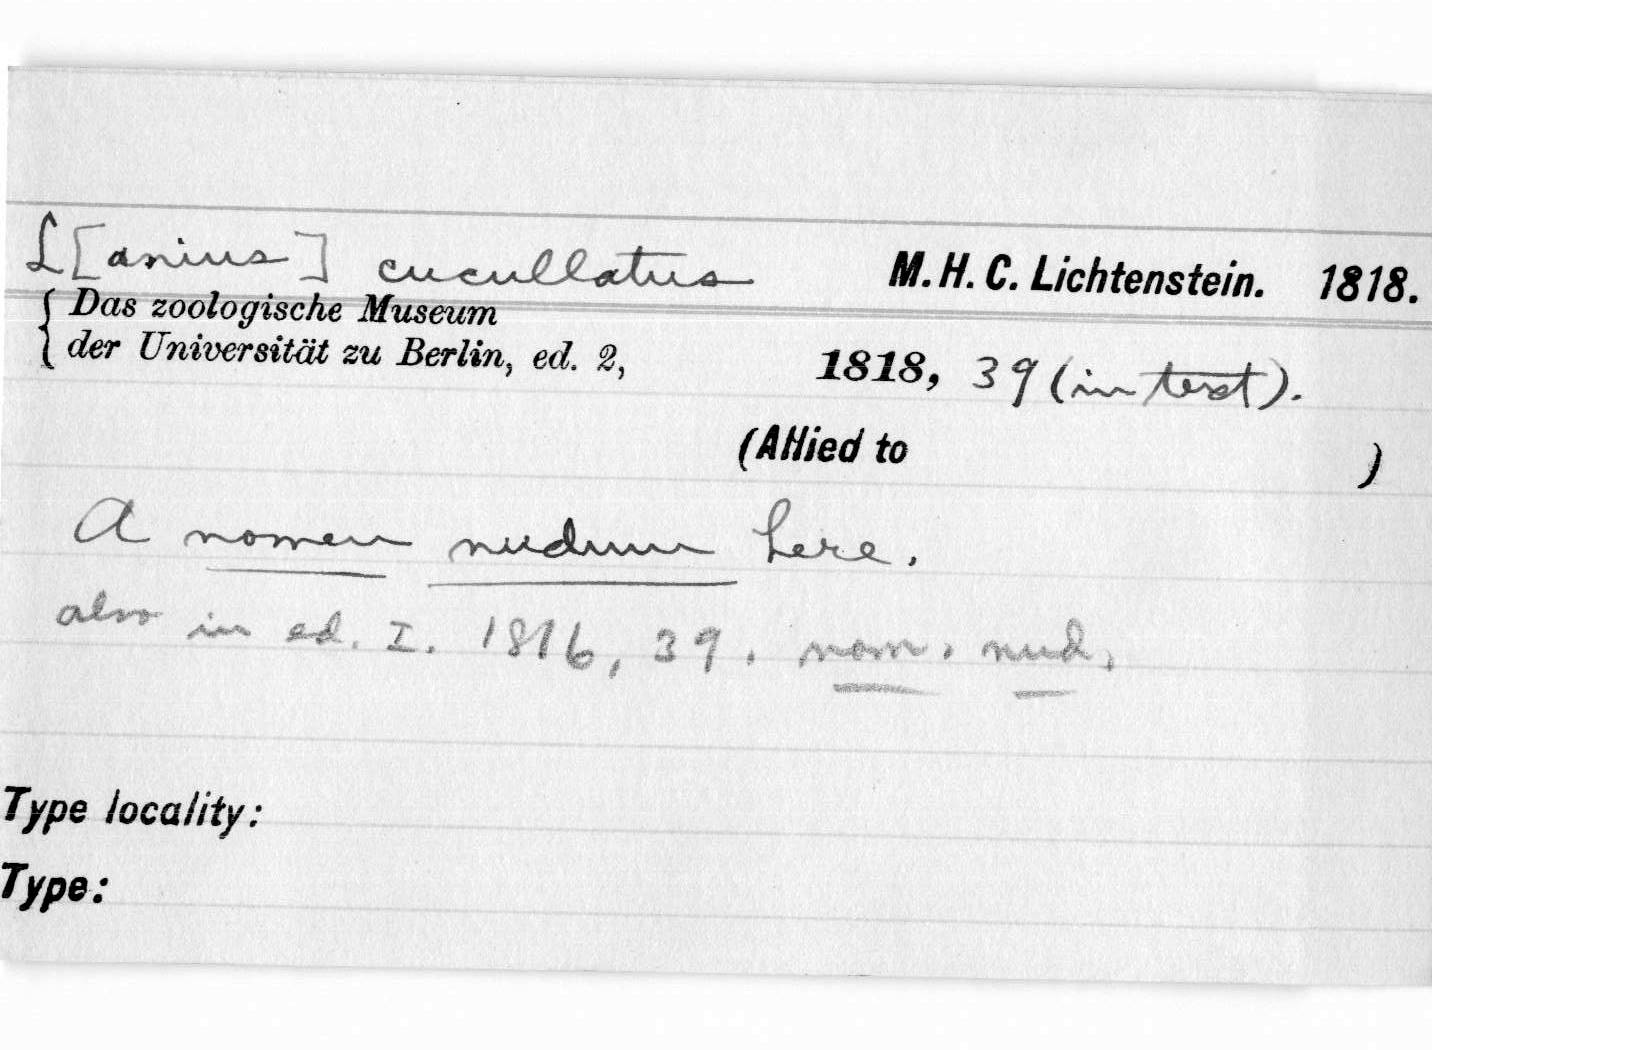 L[anius] cucullatus M. H. C. Lichtenstein. 1818.
{ Das zoologische Museum
der Universität zu Berlin, ed. 2, 1818, 39 (in text).
(Allied to )
A nomen nudum here.
also in ed. I. 1816, 39. nom. nud.
Type locality:
Type: